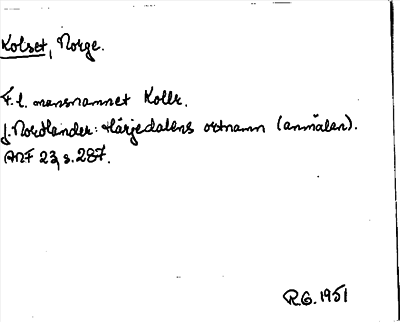 Kolset, Norge.
F.l. mansnamnet Kollr.
J. Nordlander: Härjedalens ortnamn (anmälan).
ANF 23, s. 287.
R.G. 1951